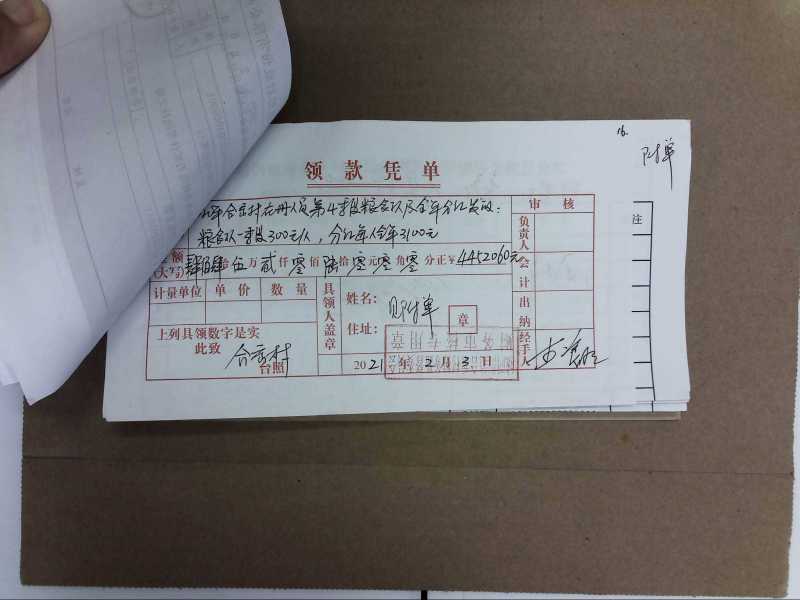 16.
附单
领款凭单
年合云村在册人员第4季度粮食以及全年分红发放:
粮食以一季度300元/人,分红每人全年3100元
审核
注
负责人
会计
出纳
经手人
金额
(大写)肆佰肆拾伍万贰仟零佰陆拾零元零角零分正¥4452060元
计量单位 单价 数量
具领人盖章
姓名:
住址:
见附单
章
上列具领数字是实
此致
台照
2021年2月3日